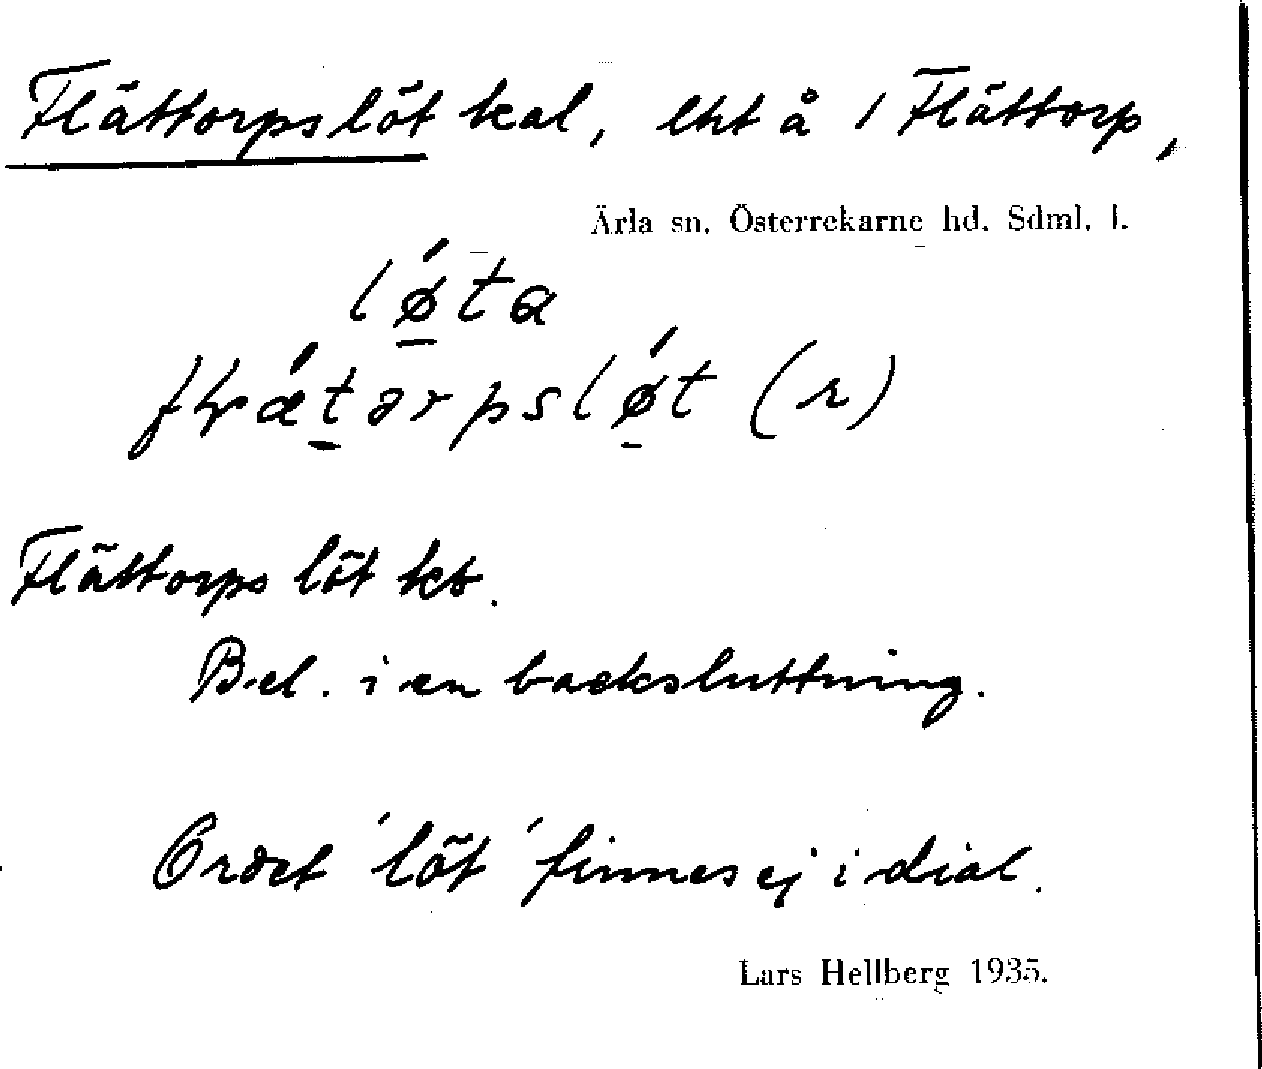 Flättorpslöt kal, lht å 1 Flättorp,
Ärla sn. Österrekarne hd. Sdml. l.
lǿta
Flättorps löt kt.
Bel. i en backsluttning.
Ordet 'löt' finnes ej i dial.
Lars Hellberg 1935.